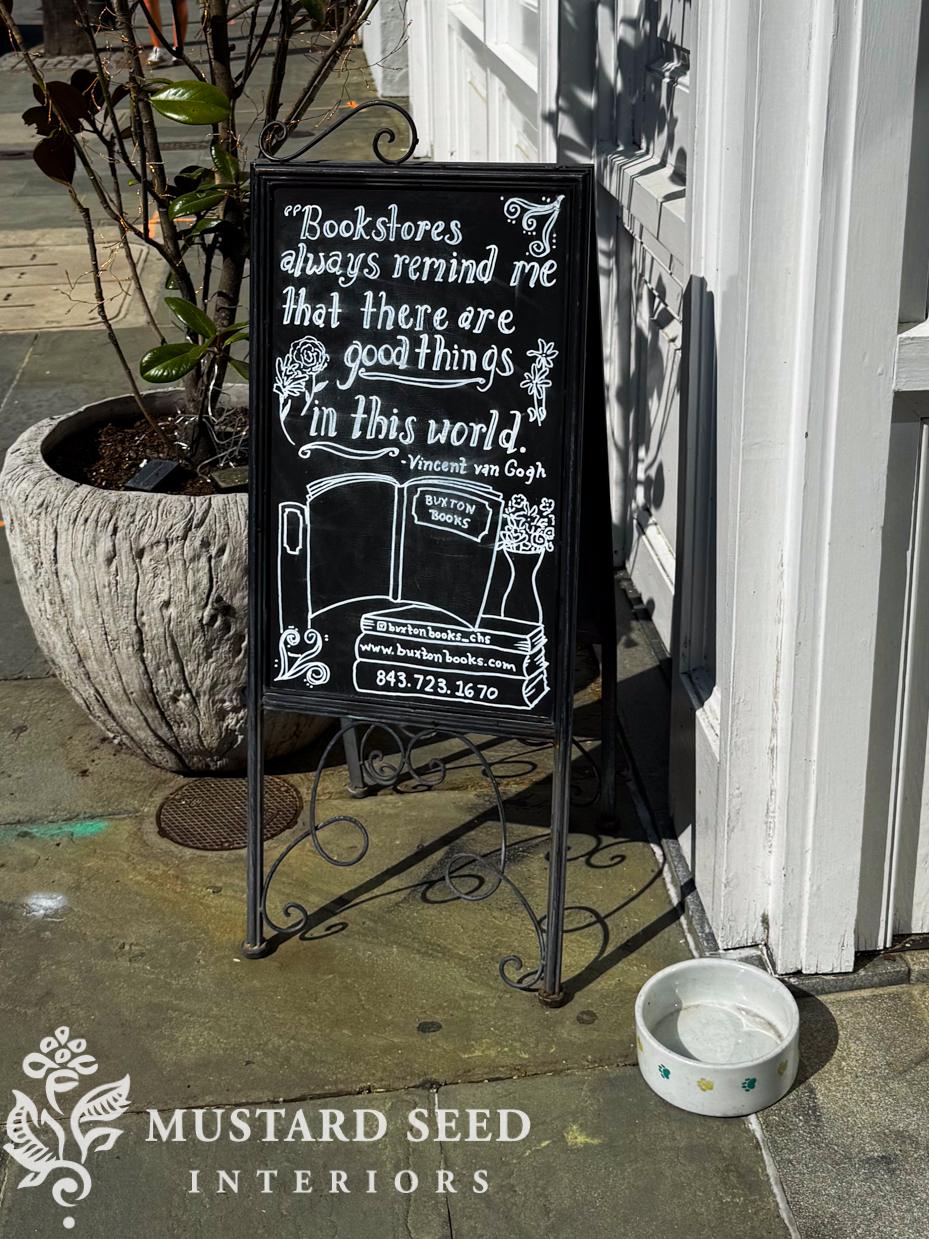 “Bookstores
always remind me
that there are
good things
in this world.”
-Vincent van Gogh
BUXTON
BOOKS
@buxtonbooks_chs
www.buxtonbooks.com
843.723.1670
MUSTARD SEED
INTERIORS